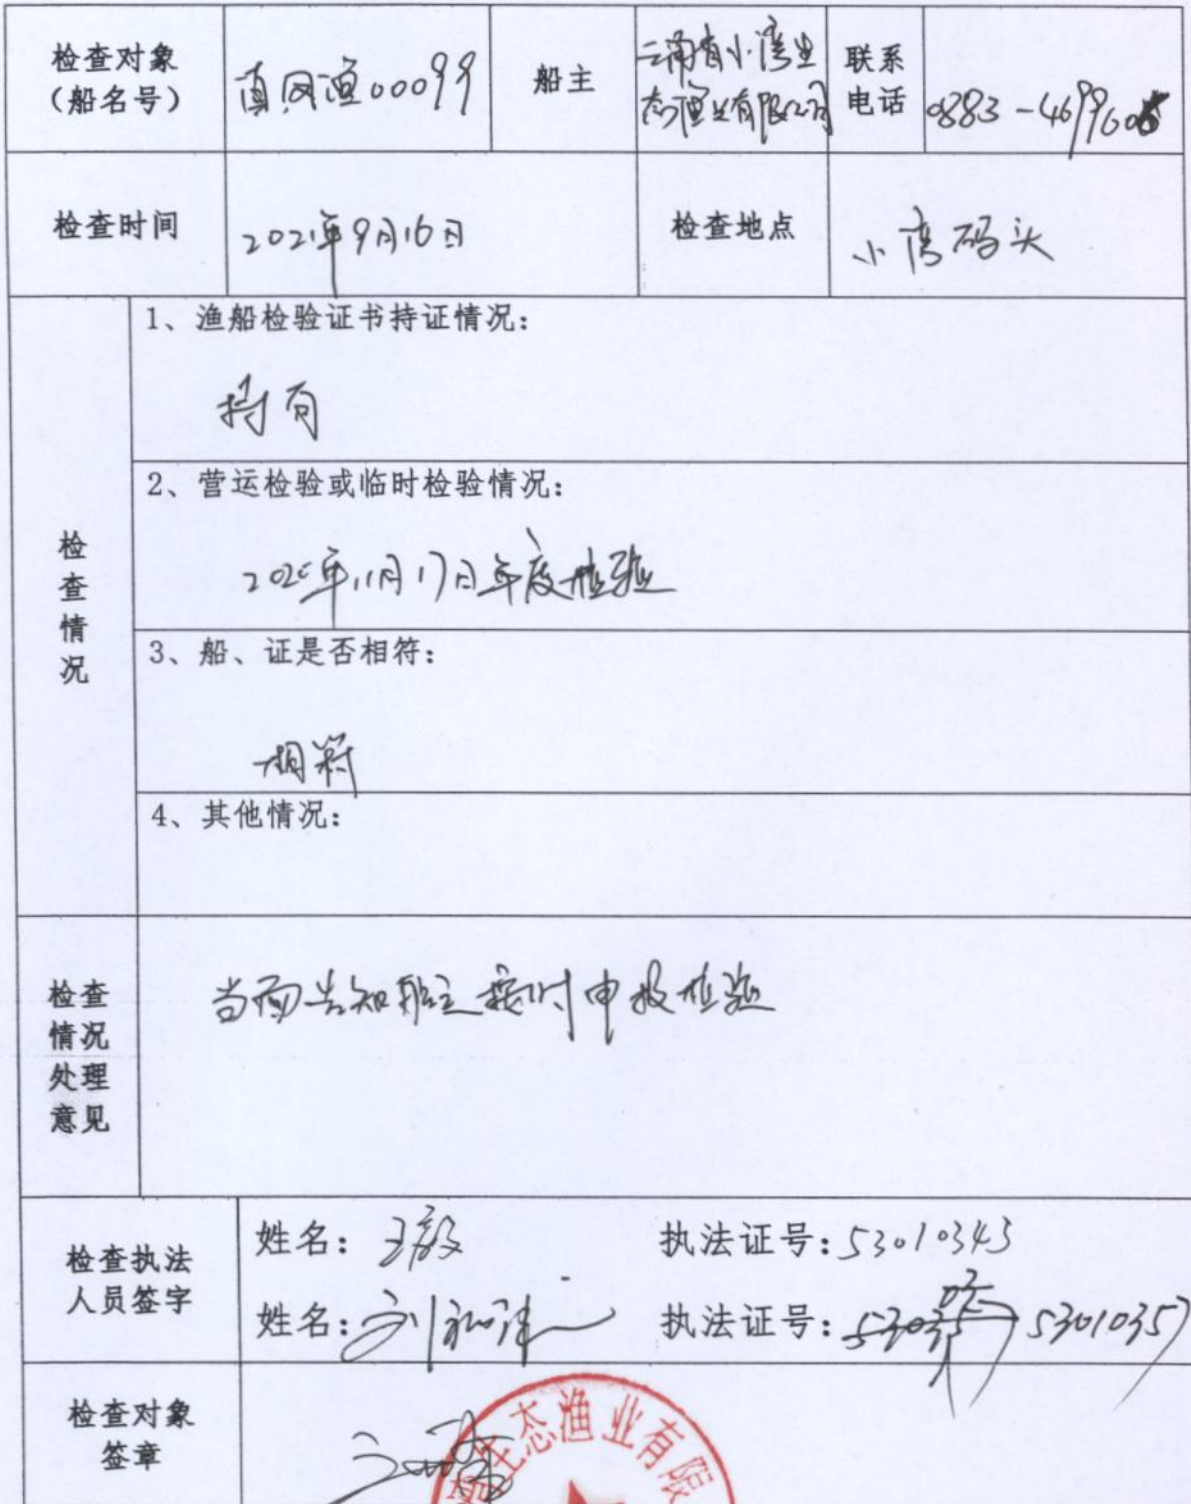 检查对象
（船名号）
滇凤渔00099
船主
云南省小湾生
态渔业有限公司
联系
电话
0883-4699606
检查时间
2021年9月16日
检查地点
小湾码头
检查情况
1、渔船检验证书持证情况：
持有
2、营运检验或临时检验情况：
2020年11月17日年度检验
3、船、证是否相符：
相符
4、其他情况：
检查
情况
处理
意见
当面告知船主按时申报检验
检查执法
人员签字
姓名：王毅
执法证号：53010343
姓名：刘
执法证号：53010357
检查对象
签章
生态渔业有限